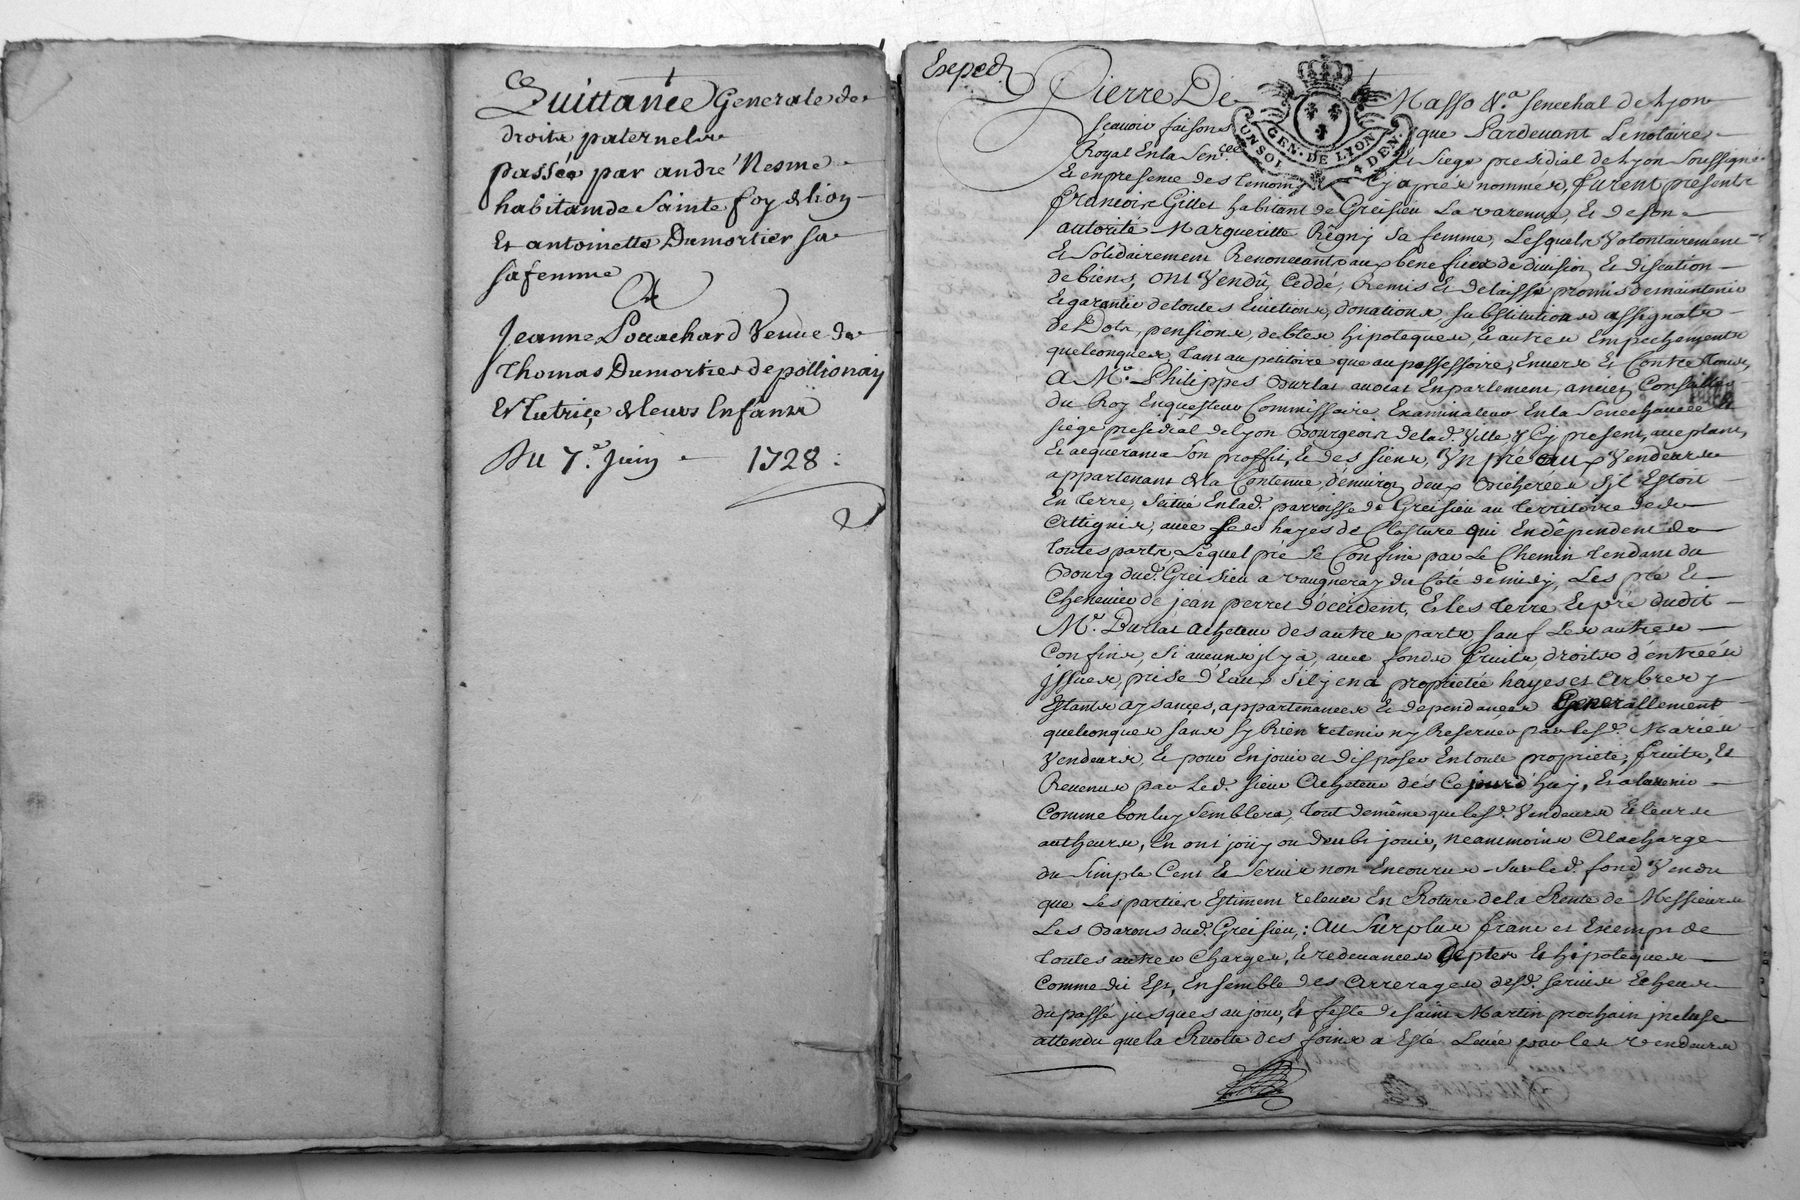 Quittance Generale de
droits paternels
passée par andré Nesme
habitant de Sainte foy les lion
Et antoinette Dumortier sa
sa femme
A
Jeanne Pouachard Veuve de
Thomas Dumortier de pollionay
Et tutrice de leurs Enfants
Du 7.e Juin 1728.
Exped.
Pierre De Masso &.a senechal de Lyon
scavoir faisons que Pardevant Le notaire
Royal En la Sen.cee Et Siege presidial de Lyon Soussigné
Et en presence des temoins Cy aprés nommés, furent presents
francois Gillet habitant de Greisieu La varenne, Et de son
autorité Margueritte Régny sa femme, Lesquels Volontairement
Et Solidairement Renoncants aux benefices de division, Et discution
de biens, Ont Vendû, Ceddé, Remis Et delaissé promis de maintenir
Et garantir de toutes Evictions, donations, substitutions assignats
de Dots, pensions, debtes hipoteques, Et autres Empechements
quelconques, tant au petitoire que au possessoire, Envers Et Contre tous,
A M.e Philippes Durlat avocat En parlement, ancien Conseiller
du Roy Enquesteur Commissaire Examinateur En la Senechaucée Et
siege presidial de Lyon Bourgeois de lad. Ville Y Cy present, acceptant,
Et acquerant a Son proffit, Et des siens, Un pré aux Vendeurs
appartenant de la Contenue, d'environ deux Bicherées s'il Estoit
En terre, Scitué En lad. parroisse de Greisieu au territoire de
Attignis, avec ses hayes de Closture qui En dépendent de
toutes parts, Lequel pré se Confine par Le Chemin tendant du
Bourg dud. Greisieu a vaugneray du Coté de midy, Les pré Et
Chenevier de jean perret d'occident, Et les terre Et pré dudit
M.e Durlat acheteur des autres parts, sauf Les autres
Confins, si aucuns il y a, avec fonds fruits, droits d'entrées
jssues, prise d'Eaux s'il y en a proprieteé hayes et Arbres y
Estants aysances, appartenances Et dependances Generallement
quelconques sans sy Rien retenir ny Reserver par lesd. Mariés
Vendeurs, Et pour En jouir et disposer En toute proprieté, fruits, Et
Revenus par Led. sieur Acheteur dés Cejourd'huy, Et a l'avenir
Comme bon luy Semblera, tout de même que lesd. Vendeurs Et leurs
autheurs, En ont joüy ou deub jouir, neanmoins A la charge
du Simple Cens Et Servis non Encourus sur led. fond Vendu
que Les parties Estiment relever En Roture de la Rente de Messieurs
Les Barons dud. Greisieu: Au Surplus franc et Exempt de
toutes autres Charges, Et redevances deptes Et hipoteques
Comme dit Est, Ensemble des Arrerages desd. servis Echeus
du passé jusques au jour, Et feste de Saint Martin prochain jncluse
attendu que la Recolte des foins a Esté Levée par les vendeurs
GEN. DE LYON
UN SOL 4 DEN.